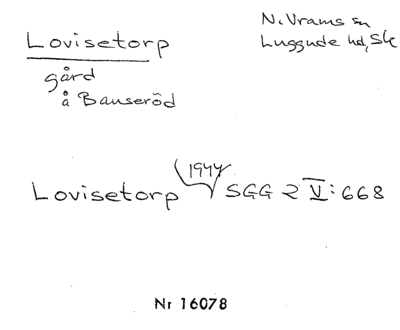 Lovisetorp
gård
å Bauseröd
N. Vrams sn
Luggude hd, Sk
1944
Lovisetorp SGG 2 V: 668
Nr 16078